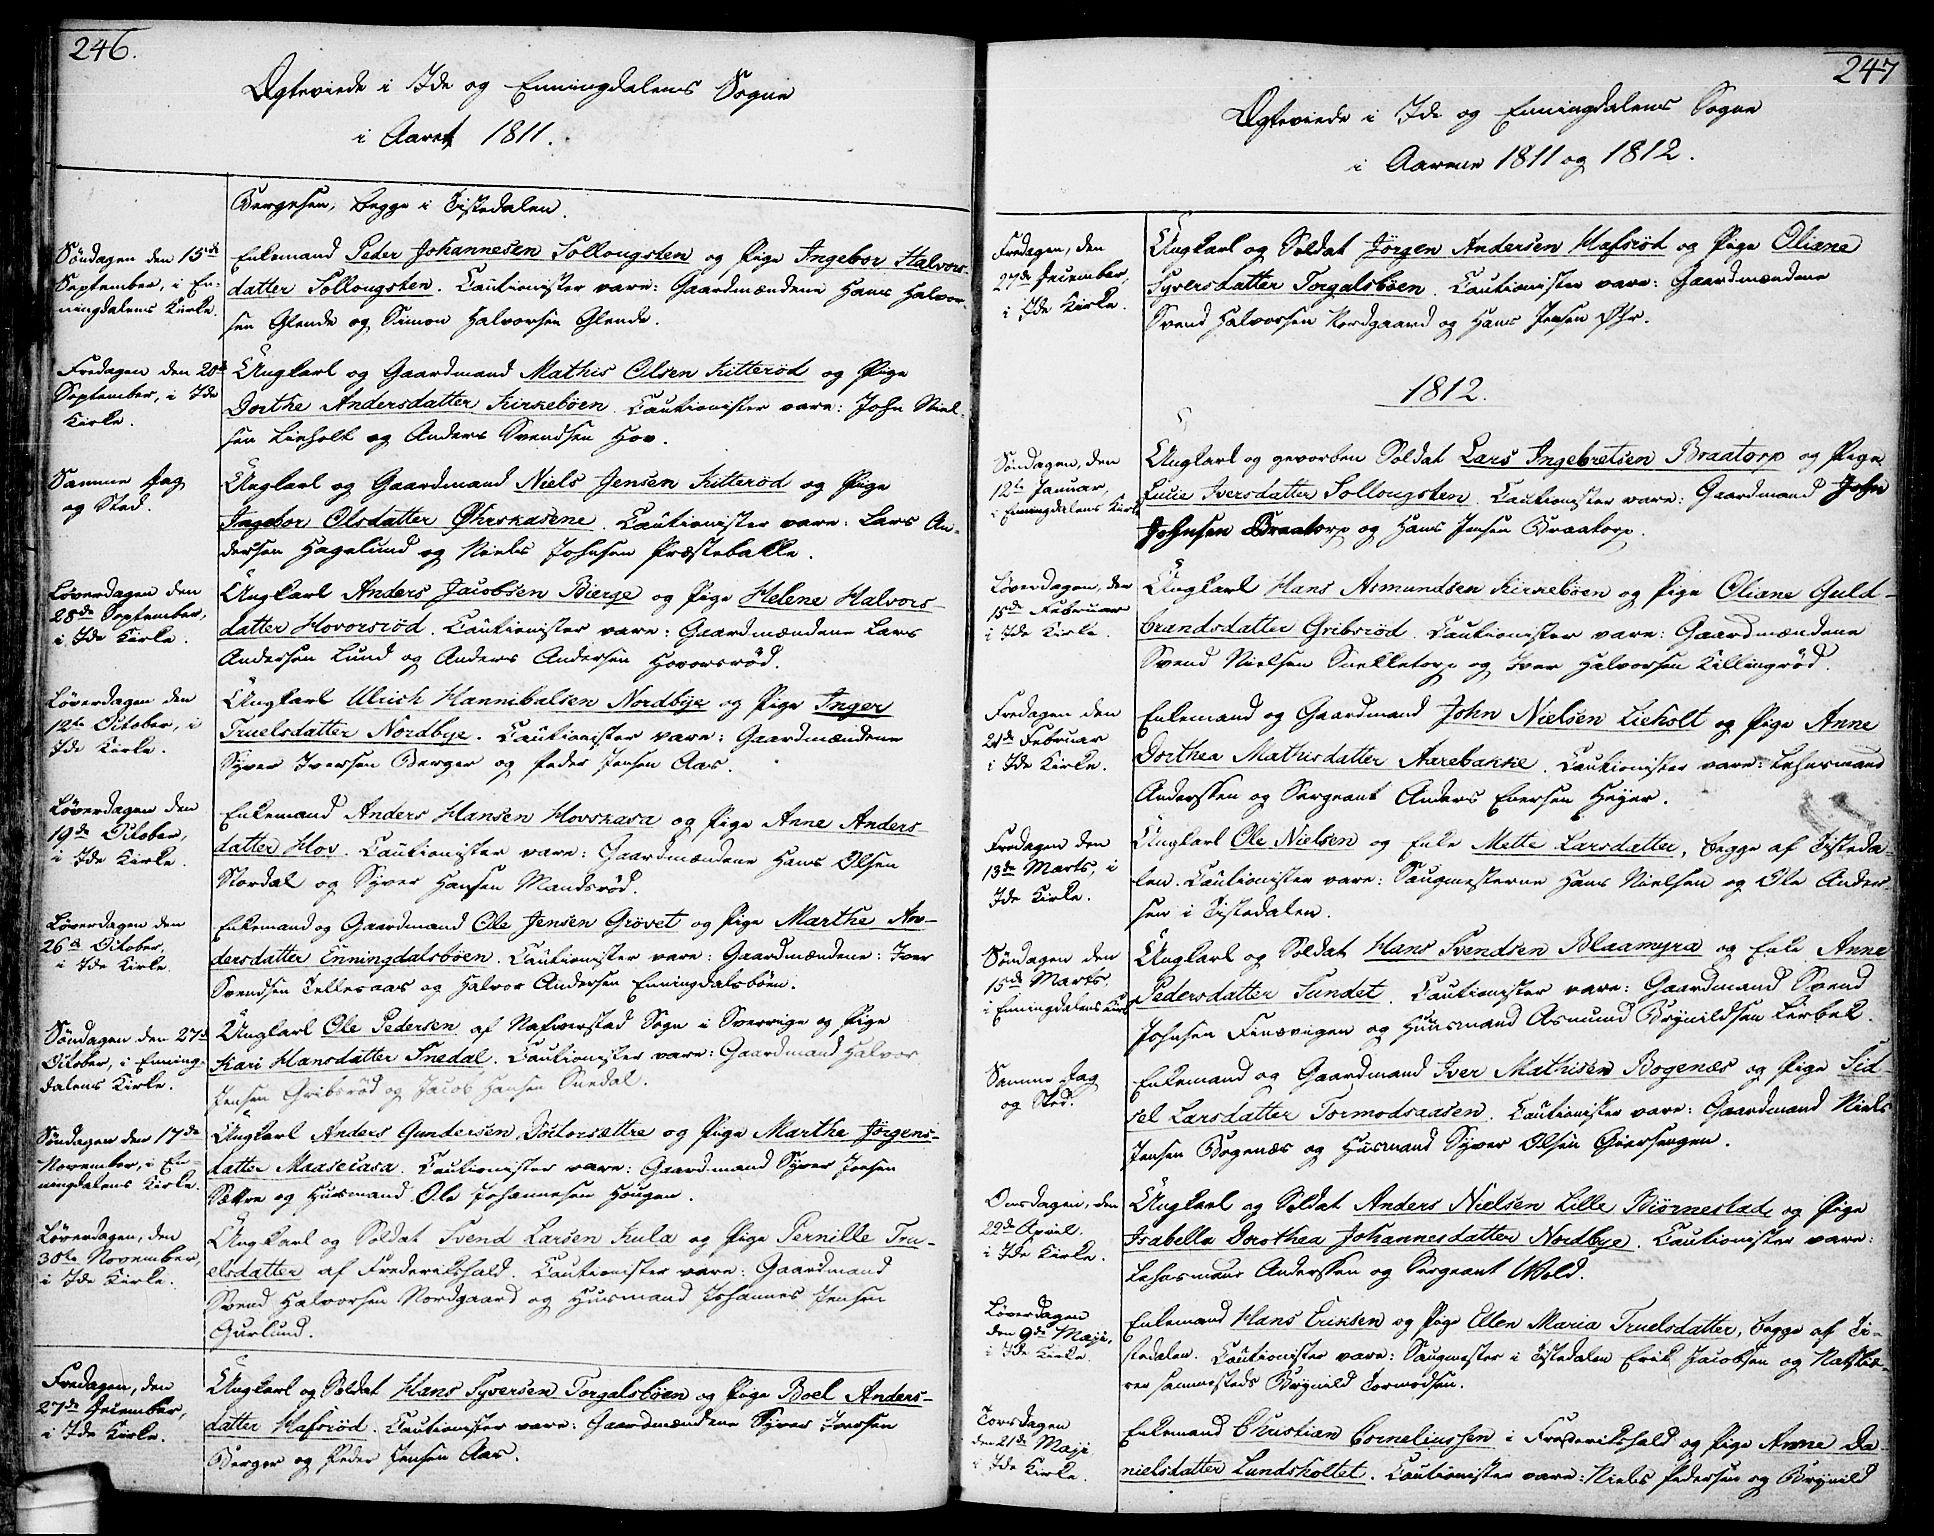 246.
Ægteviede i Ide og Enningdalens Sogne
i Aaret 1811.
Bergesen, begge i Tistedalen.
Søndagen den 15de
September, i En-
ningdalens Kirke.
Enkemand Peder Johannesen Sollougsten og Pige Ingebor Halvors-
datter Sollougsten. Cautionister vare: Gaardmændene Hans Halvor-
sen Glende og Simon Halvorsen Glende.
Fredagen den 20de
September, i Ide
Kirke.
Ungkarl og Gaardmand Mathis Olsen Kitteröd og Pige
Dorthe Andersdatter Kirkeböen. Cautionister vare: John Niel-
sen Lieholt og Anders Svendsen Hov.
Samme Dag
og Sted.
Ungkarl og Gaardmand Niels Jensen Kitteröd og Pige
Ingebor Olsdatter Øhrskasene. Cautionister vare: Lars An-
dersen Hagelund og Niels Johnsen Præstebakke.
Løverdagen den
28de September,
i Ide Kirke.
Ungkarl Anders Jacobsen Bierge og Pige Helene Halvors-
datter Hovorsröd. Cautionister vare: Gaardmændene Lars
Andersen Lund og Anders Andersen Hovorsröd.
Løverdagen den
12te October, i
Ide Kirke.
Ungkarl Ulrich Hannibalsen Nordbye og Pige Inger
Truelsdatter Nordbye. Cautionister vare: Gaardmændene
Syver Iversen Berger og Peder Jensen Aas.
Løverdagen den
19de October,
i Ide Kirke.
Enkemand Anders Hansen Hovskasa og Pige Anne Anders-
datter Hov. Cautionister vare: Gaardmændene Hans Olsen
Stordal og Syver Hansen Mandsröd.
Løverdagen den
26de October,
i Ide Kirke.
Enkemand og Gaardmand Ole Jensen Grövet og Pige Marthe An-
dersdatter Enningdalsböen. Cautionister vare: Gaardmændene: Iver
Svendsen Tellesaas og Halvor Andersen Enningdalsböen.
Søndagen den 27de
October, i Enning-
dalens Kirke.
Ungkarl Ole Pedersen af Nafverstad Sogn i Sverrige og Pige
Kari Hansdatter Snedal. Cautionister vare: Gaardmand Halvor
Jensen Gribsröd og Jacob Hansen Snedal.
Søndagen den 17de
November, i En-
ningdalens Kirke.
Ungkarl Anders Gundersen Dostorsættre og Pige Marthe Jörgens-
datter Maasecasa. Cautionister vare: Gaardmand Syver Joensen
Sættre og Huusmand Ole Johannesen Hougen.
Løverdagen, den
30te November,
i Ide Kirke.
Ungkarl og Soldat Svend Larsen Kula og Pige Pernille Tru-
elsdatter af Frederikshald. Cautionister vare: Gaardmand
Svend Halvorsen Nordgaard og Huusmand Johannes Jensen
Gurlund.
Fredagen, den
27de December,
i Ide Kirke.
Ungkarl og Soldat Hans Syversen Torgalsböen og Pige Boel Anders-
datter Hafsröd. Cautionister vare: Gaardmændene Syver Iversen
Berger og Peder Jensen Aas.
247
Ægteviede i Ide og Enningdalens Sogne
i Aarene 1811 og 1812.
Fredagen, den
27de December,
i Ide Kirke.
Ungkarl og Soldat Jörgen Andersen Hafsröd og Pige Oliane
Syversdatter Torgalsböen. Cautionister vare: Gaardmændene
Svend Halvorsen Nordgaard og Hans Jensen Øhr.
1812.
Søndagen, den
12te Januar,
i Enningdalens Kirke
Ungkarl og geworben Soldat Lars Ingebretsen Braatorp og Pige
Lucie Iversdatter Sollougsten. Cautionister vare: Gaardmand John
Johnsen Braatorp og Hans Jensen Braatorp.
Løverdagen, den
15de Februar
i Ide Kirke.
Ungkarl Hans Asmundsen Kirkeböen og Pige Oliane Guld-
brandsdatter Gribsröd. Cautionister vare: Gaardmændene
Svend Nielsen Snelletorp og Iver Halvorsen Killingröd.
Fredagen den
21de Februar
i Ide Kirke.
Enkemand og Gaardmand John Nielsen Lieholt og Pige Anne
Dorthea Mathisdatter Aarebakke. Cautionister vare: Lehnsmand
Anderssen og Sergeant Anders Eversen Heyer.
Fredagen den
13de Marts, i
Ide Kirke.
Ungkarl Ole Nielsen og Enke Mette Larsdatter, begge af Tisteda-
len. Cautionister vare: Saugmesterne Hans Nielsen og Ole Ander-
sen i Tistedalen.
Søndagen den
15de Marts,
i Enningdalens Kirke
Ungkarl og Soldat Hans Svendsen Blaamyra og Enke Anne
Pedersdatter Sundet. Cautionister vare: Gaardmand Svend
Johnsen Finævigen og Huusmand Asmund Brynildsen Lerbek.
Samme Dag
og Sted.
Enkemand og Gaardmand Iver Mathisen Bogenæs og Pige Sid-
sel Larsdatter Tormodsaasen. Cautionister vare: Gaardmand Niels
Jensen Bogenæs og Huusmand Syver Olsen Giersengen.
Onsdagen, den
29de April.
i Ide Kirke.
Ungkarl og Soldat Anders Nielsen Lille Biörnestad og Pige
Isabella Dorothea Johannesdatter Nordbye. Cautionister vare:
Lehnsmand Anderssen og Sergeant Wold.
Løverdagen
den 9de Maji,
i Ide Kirke.
Enkemand Hans Eriksen og Pige Ellen Maria Truelsdatter, begge af Ti-
stedalen. Cautionister vare: Saugmester i Tistedalen Erik Jacobsen og
sammesteds Brynild Tormodsen.
Torsdagen
den 21de Maji
i Ide Kirke.
Enkemand Christian Corneliussen i Frederikshald og Pige Anne Da-
nielsdatter Lundsholtet. Cautionister vare: Niels Pedersen og Brynild